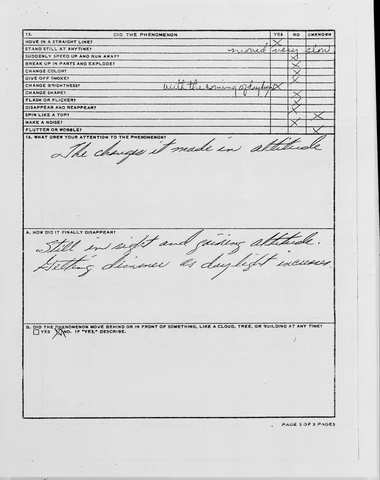 13. DID THE PHENOMENON YES NO UNKNOWN
MOVE IN A STRAIGHT LINE? X
STAND STILL AT ANYTIME? moved very slow
SUDDENLY SPEED UP AND RUN AWAY? X
BREAK UP IN PARTS AND EXPLODE? X
CHANGE COLOR? X
GIVE OFF SMOKE? X
CHANGE BRIGHTNESS? with the coming of daylight X
CHANGE SHAPE? X
FLASH OR FLICKER? X
DISAPPEAR AND REAPPEAR? X
SPIN LIKE A TOP? X
MAKE A NOISE? X
FLUTTER OR WOBBLE? X
14. WHAT DREW YOUR ATTENTION TO THE PHENOMENON?
The changes it made in altitude
A. HOW DID IT FINALLY DISAPPEAR?
Still in sight and gaining altitude.
Getting dimmer as daylight increases
B. DID THE PHENOMENON MOVE BEHIND OR IN FRONT OF SOMETHING, LIKE A CLOUD, TREE, OR BUILDING AT ANY TIME?
YES X NO. IF "YES," DESCRIBE.
PAGE 3 OF 3 PAGES